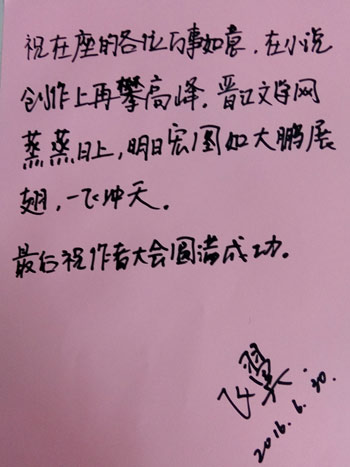 祝在座的各位万事如意，在小说
创作上再攀高峰，晋江文学网
蒸蒸日上，明日宏图如大鹏展
翅，一飞冲天。
最后祝作者大会圆满成功。
飞翼
2016.6.30.